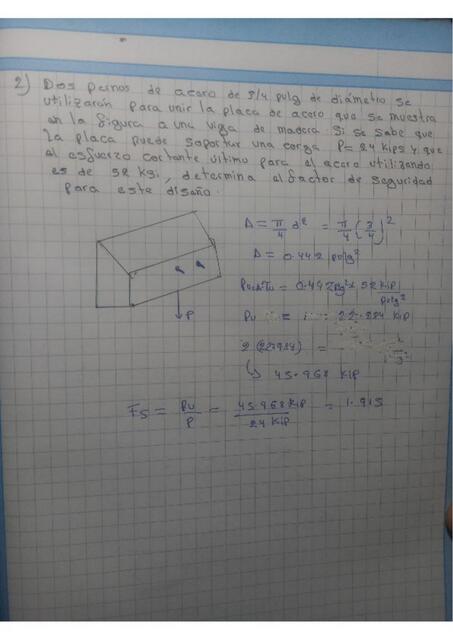 2) Dos pernos de acero de 3/4 pulg de diámetro se
utilizaron para unir la placa de acero que se muestra
en la figura a una viga de madera Si se sabe que
la placa puede soportar una carga P= 24 kips y que
el esfuerzo cortante último para el acero utilizando
es de 52 ksi, determina el factor de seguridad
para este diseño.
A = π/4 d² = π/4 (3/4)²
A = 0.442 pulg²
Pu=A·Tu = 0.442 pulg² x 52 kip/pulg²
Pu = 22.984 kip
2 (22.984) =
↳ 45.968 kip
P
FS = Pu/P = 45.968 kip/24 kip = 1.915